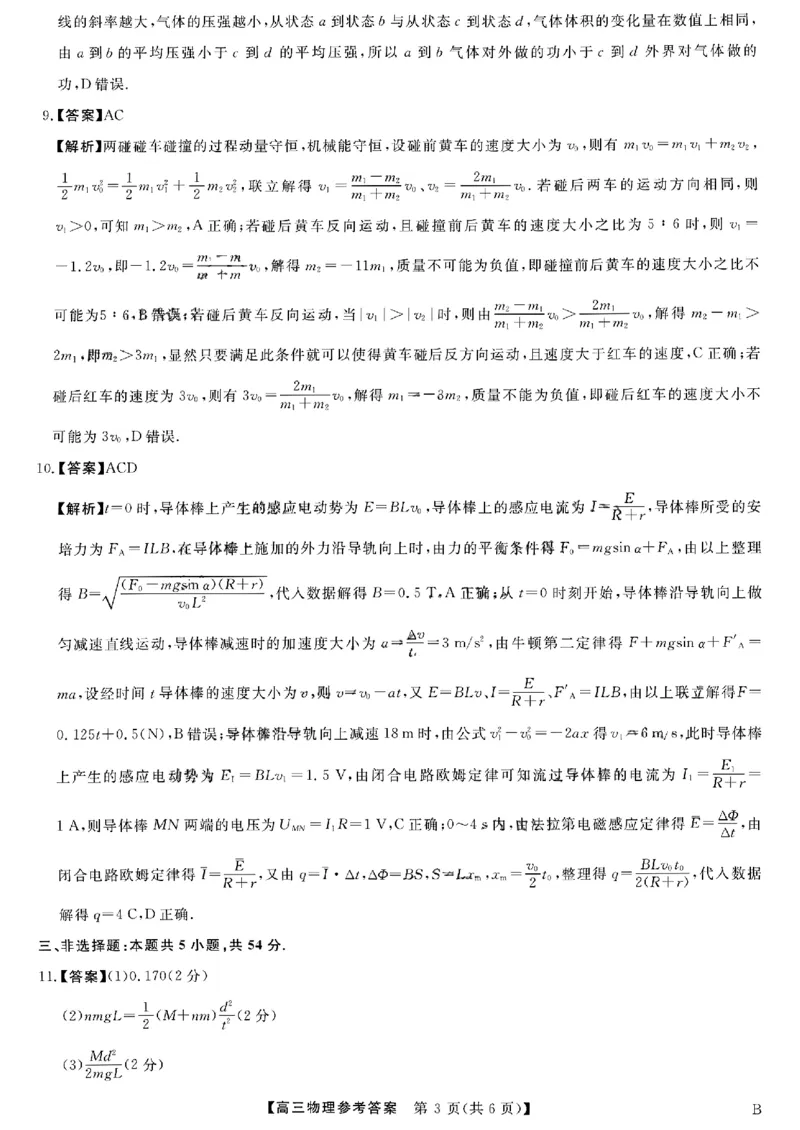 线的斜率越大,气体的压强越小,从状态 a 到状态 b 与从状态 c 到状态 d,气体体积的变化量在数值上相同,
由 a 到 b 的平均压强小于 c 到 d 的平均压强,所以 a 到 b 气体对外做的功小于 c 到 d 外界对气体做的
功,D 错误.
9.【答案】AC
【解析】两碰碰车碰撞的过程动量守恒,机械能守恒,设碰前黄车的速度大小为 v₀,则有 m₁v₀=m₁v₁+m₂v₂,
1/2 m₁v₀²=1/2 m₁v₁²+1/2 m₂v₂²,联立解得 v₁=(m₁-m₂)/(m₁+m₂) v₀、v₂=2m₁/(m₁+m₂) v₀.若碰后两车的运动方向相同,则
v₁>0,可知 m₁>m₂,A 正确;若碰后黄车反向运动,且碰撞前后黄车的速度大小之比为 5∶6 时,则 v₁=
-1.2v₀,即-1.2v₀=(m₁-m)/(m+m) v₀,解得 m₂=-11m₁,质量不可能为负值,即碰撞前后黄车的速度大小之比不
可能为5∶6,B 错误;若碰后黄车反向运动,当|v₁|>|v₂|时,则由(m₂-m₁)/(m₁+m₂) v₀>2m₁/(m₁+m₂) v₀,解得 m₂-m₁>
2m₁,即m₂>3m₁,显然只要满足此条件就可以使得黄车碰后反方向运动,且速度大于红车的速度,C 正确;若
碰后红车的速度为 3v₀,则有 3v₀=2m₁/(m₁+m₂) v₀,解得 m₁=-3m₂,质量不能为负值,即碰后红车的速度大小不
可能为 3v₀,D 错误.
10.【答案】ACD
【解析】t=0 时,导体棒上产生的感应电动势为 E=BLv₀,导体棒上的感应电流为 I=E/(R+r),导体棒所受的安
培力为 F_A=ILB,在导体棒上施加的外力沿导轨向上时,由力的平衡条件得 F₀=mgsin α+F_A,由以上整理
得 B=√((F₀-mgsin α)(R+r)/(v₀L²)),代入数据解得 B=0.5 T,A 正确;从 t=0 时刻开始,导体棒沿导轨向上做
匀减速直线运动,导体棒减速时的加速度大小为 a=Δv/t=3 m/s²,由牛顿第二定律得 F+mgsin α+F′_A=
ma,设经时间 t 导体棒的速度大小为 v,则 v=v₀-at,又 E=BLv、I=E/(R+r)、F′_A=ILB,由以上联立解得F=
0.125t+0.5(N),B 错误;导体棒沿导轨向上减速 18 m 时,由公式 v₁²-v₀²=-2ax 得 v₁=6 m/s,此时导体棒
上产生的感应电动势为 E₁=BLv₁=1.5 V,由闭合电路欧姆定律可知流过导体棒的电流为 I₁=E₁/(R+r)=
1 A,则导体棒 MN 两端的电压为 U_MN=I₁R=1 V,C 正确;0~4 s 内,由法拉第电磁感应定律得 E̅=ΔΦ/Δt,由
闭合电路欧姆定律得 I̅=E̅/(R+r),又由 q=I̅·Δt,ΔΦ=BS,S=Lxₘ,xₘ=v₀/2 t₀,整理得 q=BLv₀t₀/(2(R+r)),代入数据
解得 q=4 C,D 正确.
三、非选择题:本题共 5 小题,共 54 分.
11.【答案】(1)0.170(2 分)
(2)nmgL=1/2 (M+nm) d²/t² (2 分)
(3)Md²/(2mgL) (2 分)
【高三物理参考答案 第 3 页(共 6 页)】 B